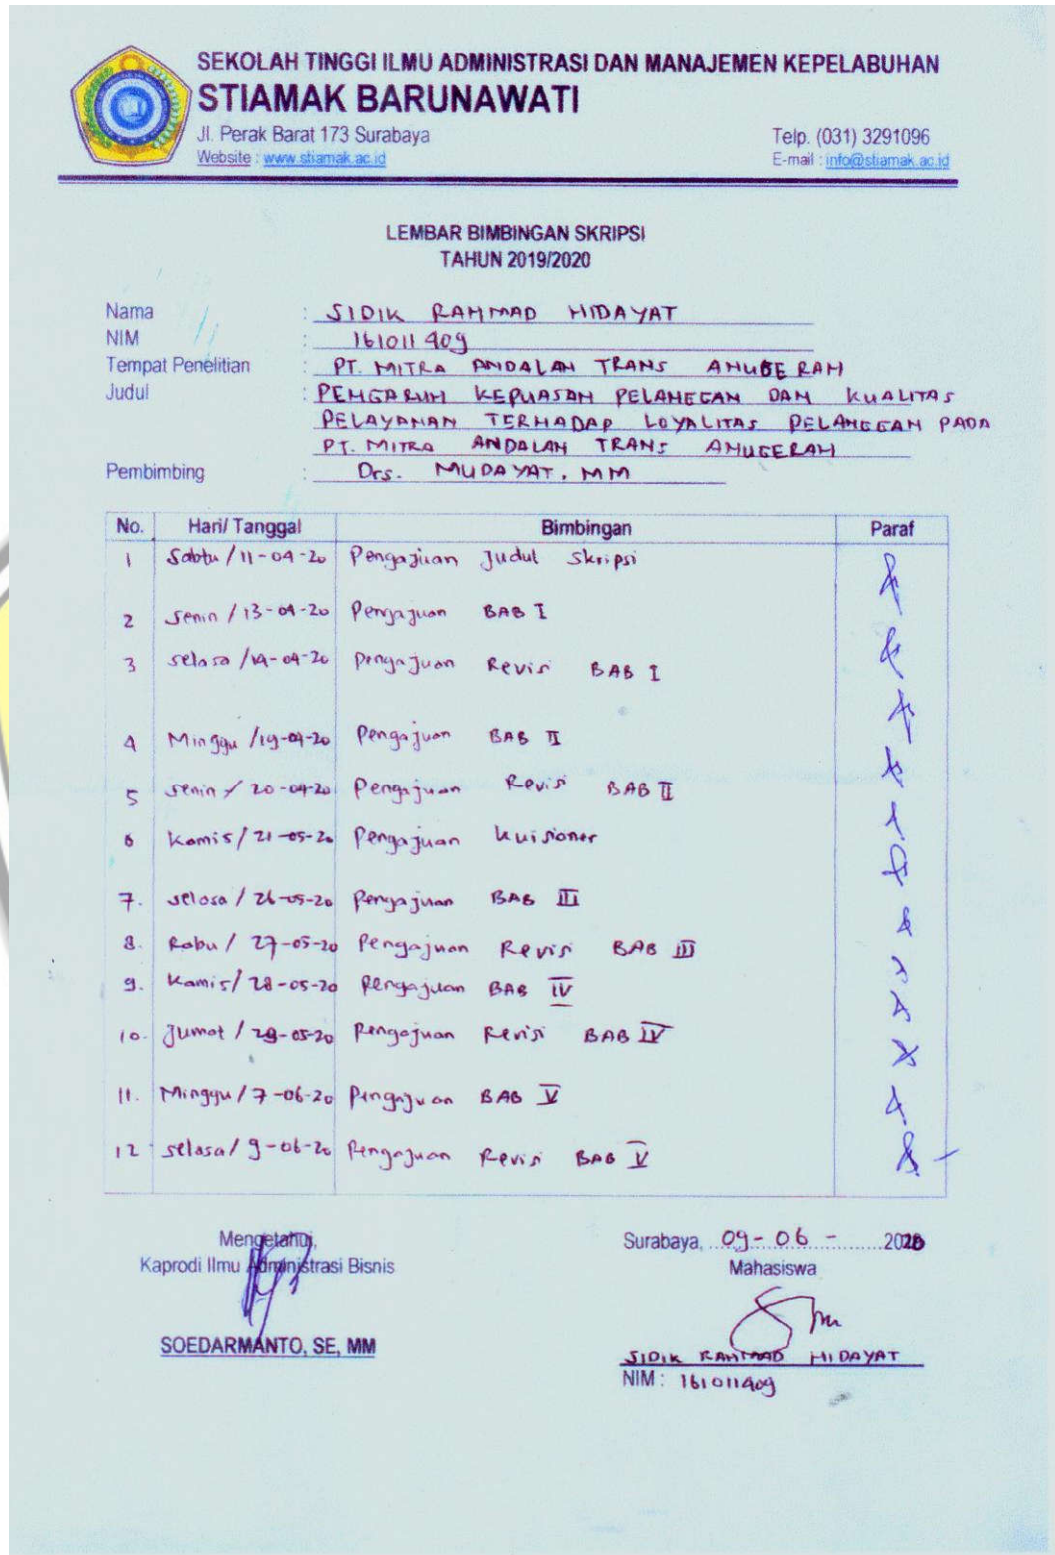 SEKOLAH TINGGI ILMU ADMINISTRASI DAN MANAJEMEN KEPELABUHAN
STIAMAK BARUNAWATI
Jl. Perak Barat 173 Surabaya Telp. (031) 3291096
Website : www.stiamak.ac.id E-mail : info@stiamak.ac.id
LEMBAR BIMBINGAN SKRIPSI
TAHUN 2019/2020
Nama : SIDIK RAHMAD HIDAYAT
NIM : 161011409
Tempat Penelitian : PT. MITRA ANDALAN TRANS ANUGERAH
Judul : PENGARUH KEPUASAN PELANGGAN DAN KUALITAS
PELAYANAN TERHADAP LOYALITAS PELANGGAN PADA
PT. MITRA ANDALAN TRANS ANUGERAH
Pembimbing : Drs. MUDAYAT, MM
No. Hari/ Tanggal Bimbingan Paraf
1 Sabtu / 11-04-20 Pengajuan Judul Skripsi
2 Senin / 13-04-20 Pengajuan BAB I
3 Selasa / 14-04-20 Pengajuan Revisi BAB I
4 Minggu / 19-04-20 Pengajuan BAB II
5 Senin / 20-04-20 Pengajuan Revisi BAB II
6 Kamis / 21-05-20 Pengajuan Kuisioner
7. Selasa / 26-05-20 Pengajuan BAB III
8. Rabu / 27-05-20 Pengajuan Revisi BAB III
9. Kamis / 28-05-20 Pengajuan BAB IV
10. Jumat / 29-05-20 Pengajuan Revisi BAB IV
11. Minggu / 7-06-20 Pengajuan BAB V
12 Selasa / 9-06-20 Pengajuan Revisi BAB V
Mengetahui, Surabaya, 09-06-2020
Kaprodi Ilmu Administrasi Bisnis Mahasiswa
SOEDARMANTO, SE, MM SIDIK RAHMAD HIDAYAT
NIM : 161011409